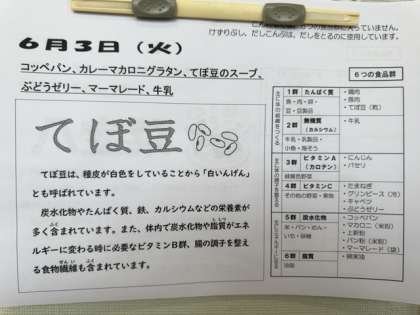 入っていません。
けずりぶし、だしこんぶは、だしをとるのに使用しています。
6月3日（火）
コッペパン、カレーマカロニグラタン、てぼ豆のスープ、
ぶどうゼリー、マーマレード、牛乳
てぼ豆
てぼ豆は、種皮が白色をしていることから「白いんげん」
とも呼ばれています。
炭水化物やたんぱく質、鉄、カルシウムなどの栄養素が
多く含まれています。また、体内で炭水化物や脂質がエネ
ルギーに変わる時に必要なビタミンB群、腸の調子を整え
る食物繊維も含まれています。
6つの食品群
1群 たんぱく質
魚・肉・卵・
豆・豆製品
・鶏肉
・豚肉
・てぼ豆（乾）
2群 無機質
（カルシウム）
牛乳・乳製品・
小魚・海そう
・牛乳
3群 ビタミンA
（カロテン）
緑黄色野菜
・にんじん
・パセリ
4群 ビタミンC
その他の野菜・果物
・たまねぎ
・グリンピース（冷）
・キャベツ
・ぶどうゼリー
5群 炭水化物
米・パン・めん・
いも・砂糖
・コッペパン
・マカロニ（米粉）
・上新粉
・パン粉（米粉）
・マーマレード（袋）
6群 脂質
油脂
・綿実油